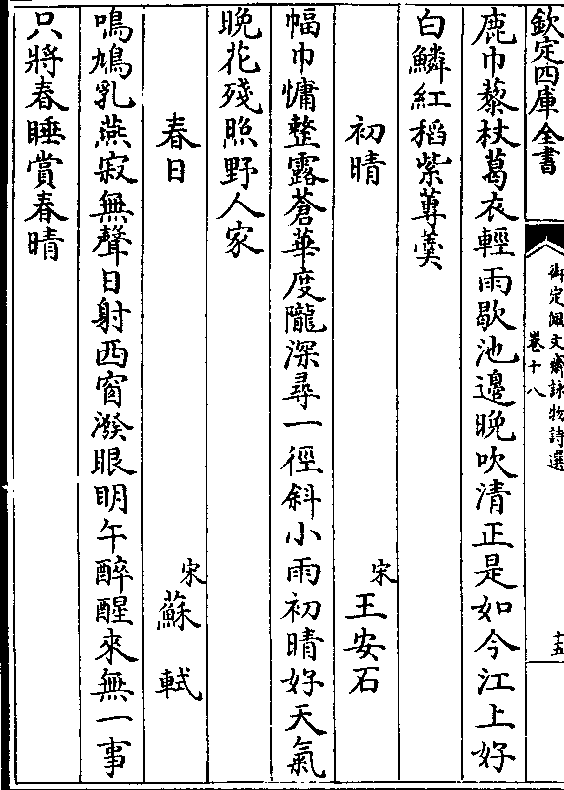 欽定四庫全書
御定佩文齋詠物詩選
卷十八
十五
鹿巾藜杖葛衣輕雨歇池邊晚吹清正是如今江上好
白鱗紅稻紫蓴羹
初晴
宋
王安石
幅巾慵整露蒼華度隴深尋一徑斜小雨初晴好天氣
晚花殘照野人家
春日
宋
蘇軾
鳴鳩乳燕寂無聲日射西窗潑眼明午醉醒來無一事
只將春睡賞春晴